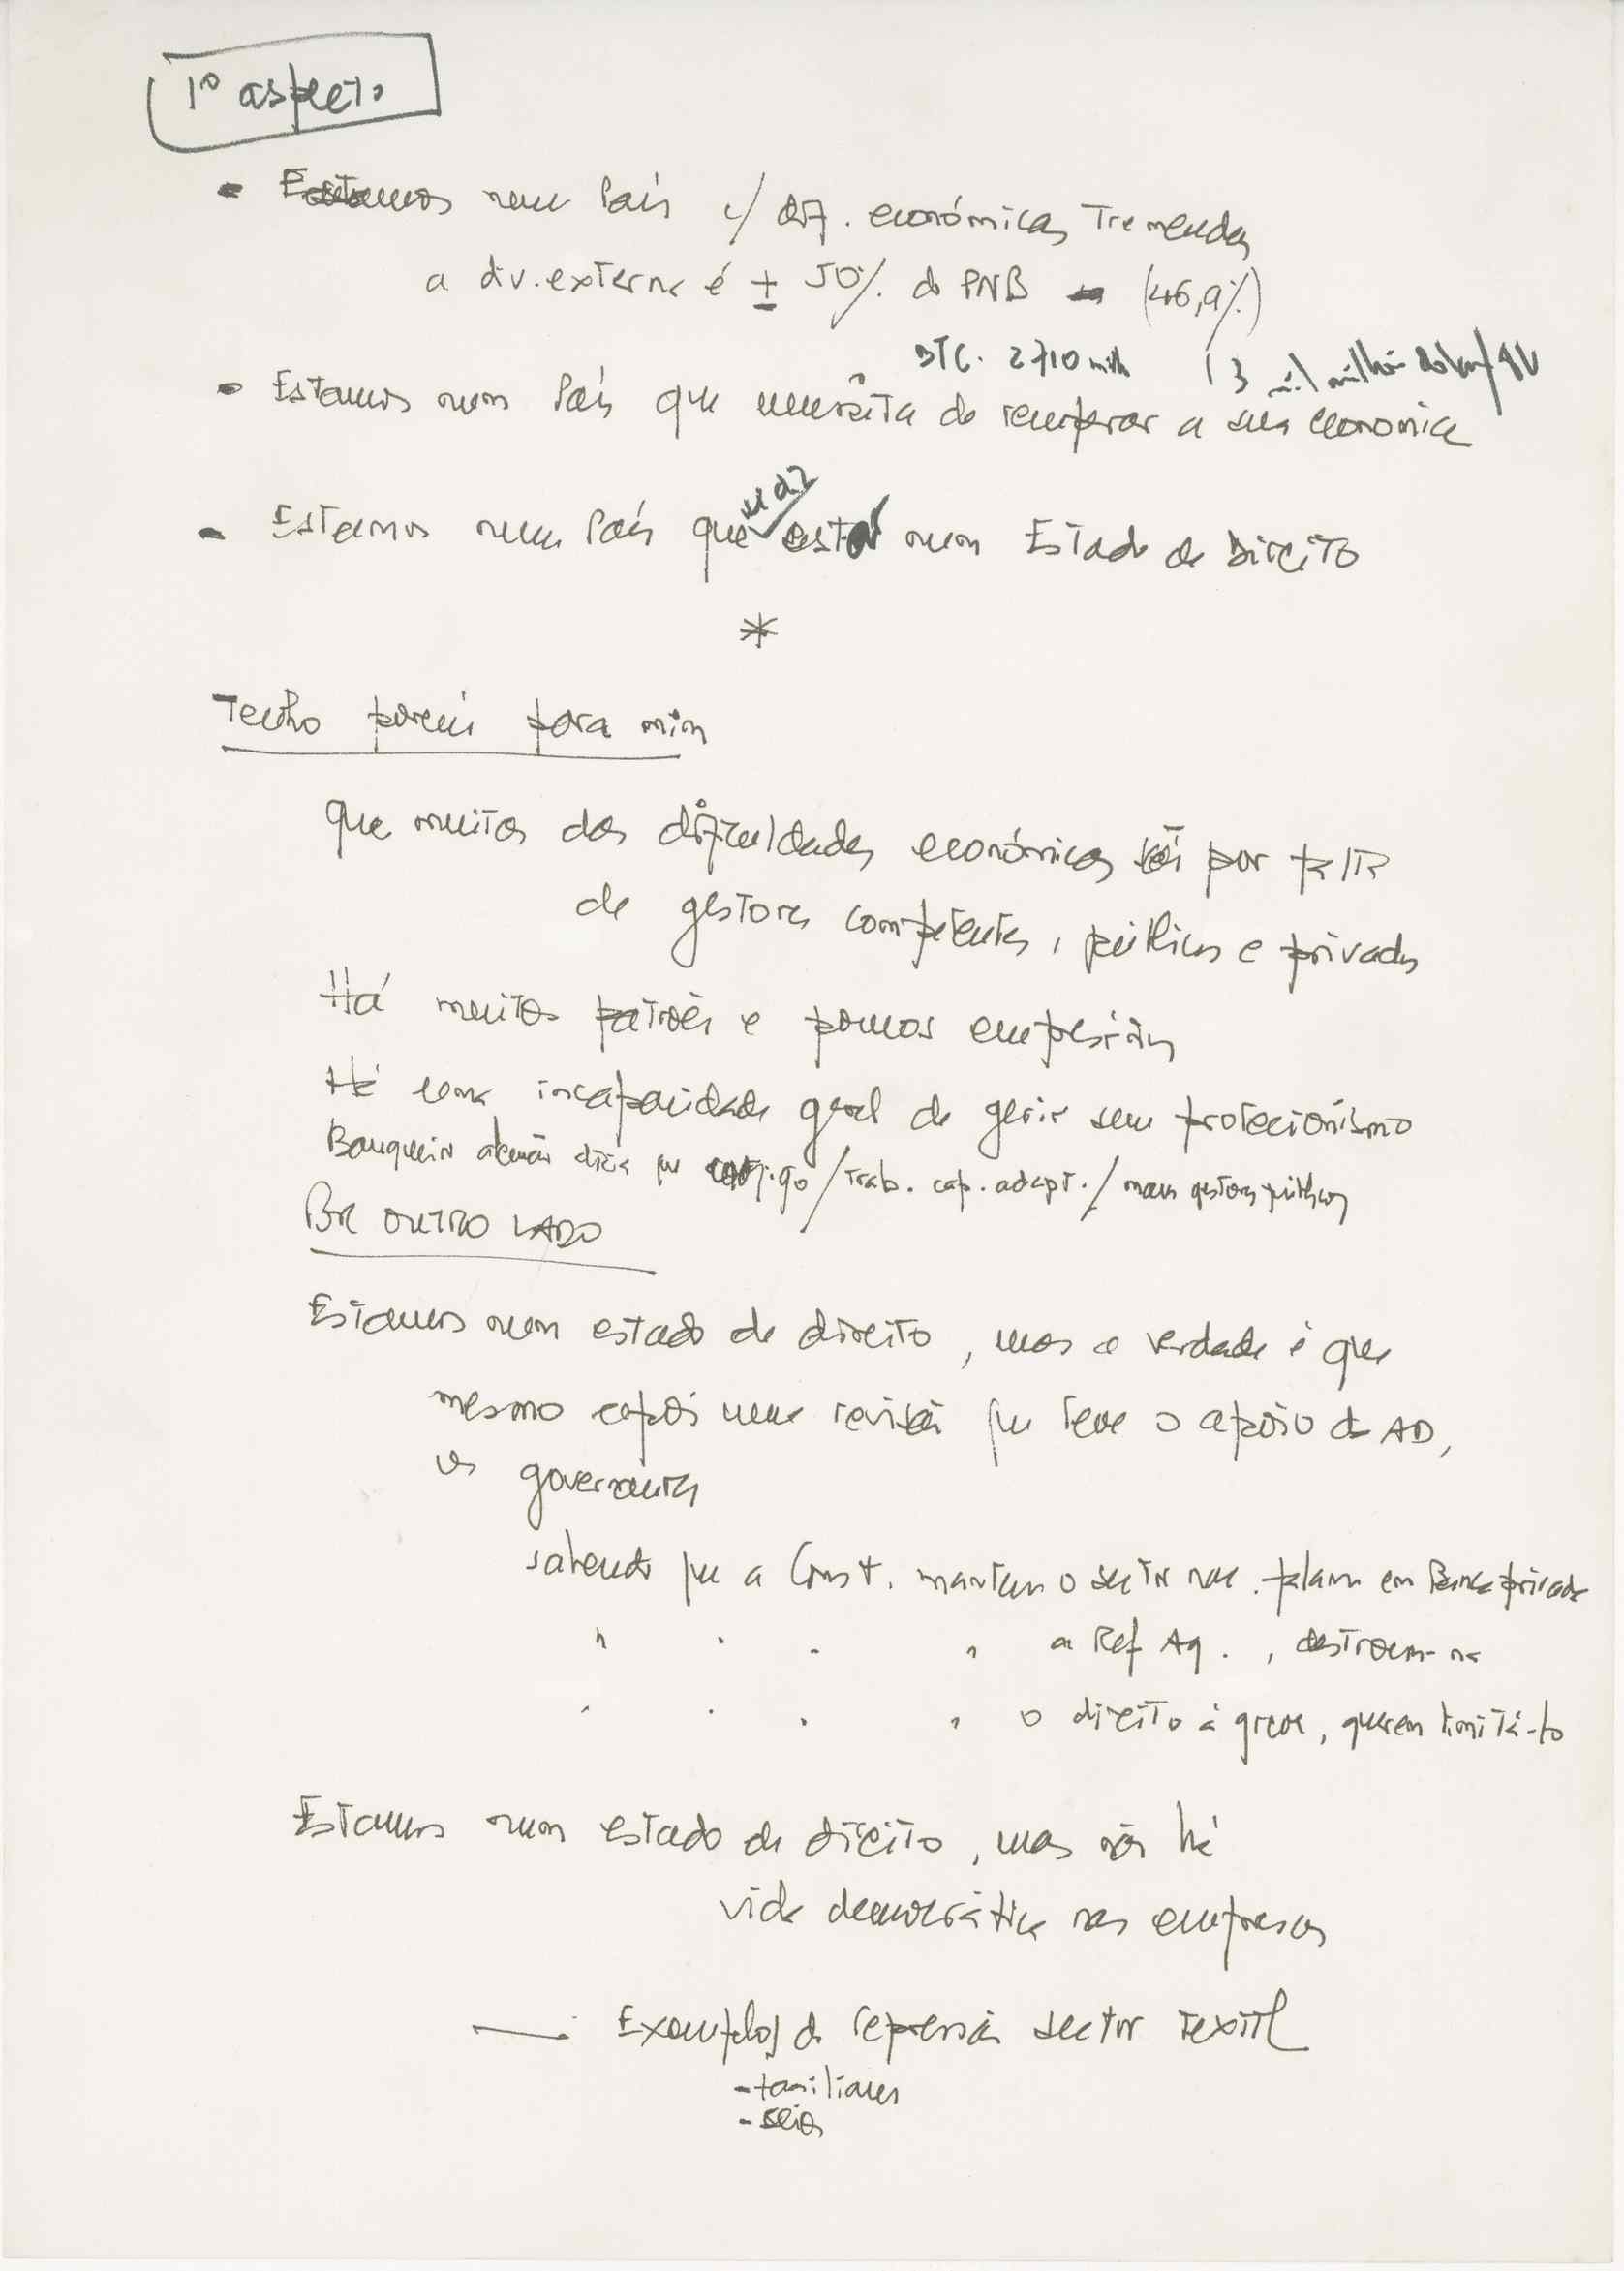 1º aspeto
- Estamos num País c/ dif. económicas tremendas
a div. externa é ± 50% do PNB (46,9%)
BTC. 2710 milh (13 mil milhões
- Estamos num País que necessita de recuperar a sua economia
se diz
- Estamos num País que está num Estado de Direito
*
Tenho porém para mim
que muitas das dificuldades económicas são por
de gestores competentes, públicos e privados
Há muitos patrões e poucos empresários
Há uma incapacidade geral de gerir sem protecionismo
Banqueiro alemão dizia que / trab. cap. adapt. / maus gestores públicos
POR OUTRO LADO
Estamos num estado de direito, mas a verdade é que
mesmo após uma revisão que teve o apoio da AD,
os governantes
sabendo que a Const. mantem o sector nac. falam em Banca privada
" " " " a Ref Ag. , destroem-na
" " " " o direito à greve, querem limitá-lo
Estamos num estado de direito, mas não há
vida democrática nas empresas
— Exemplos de repressão sector textil
- familiares